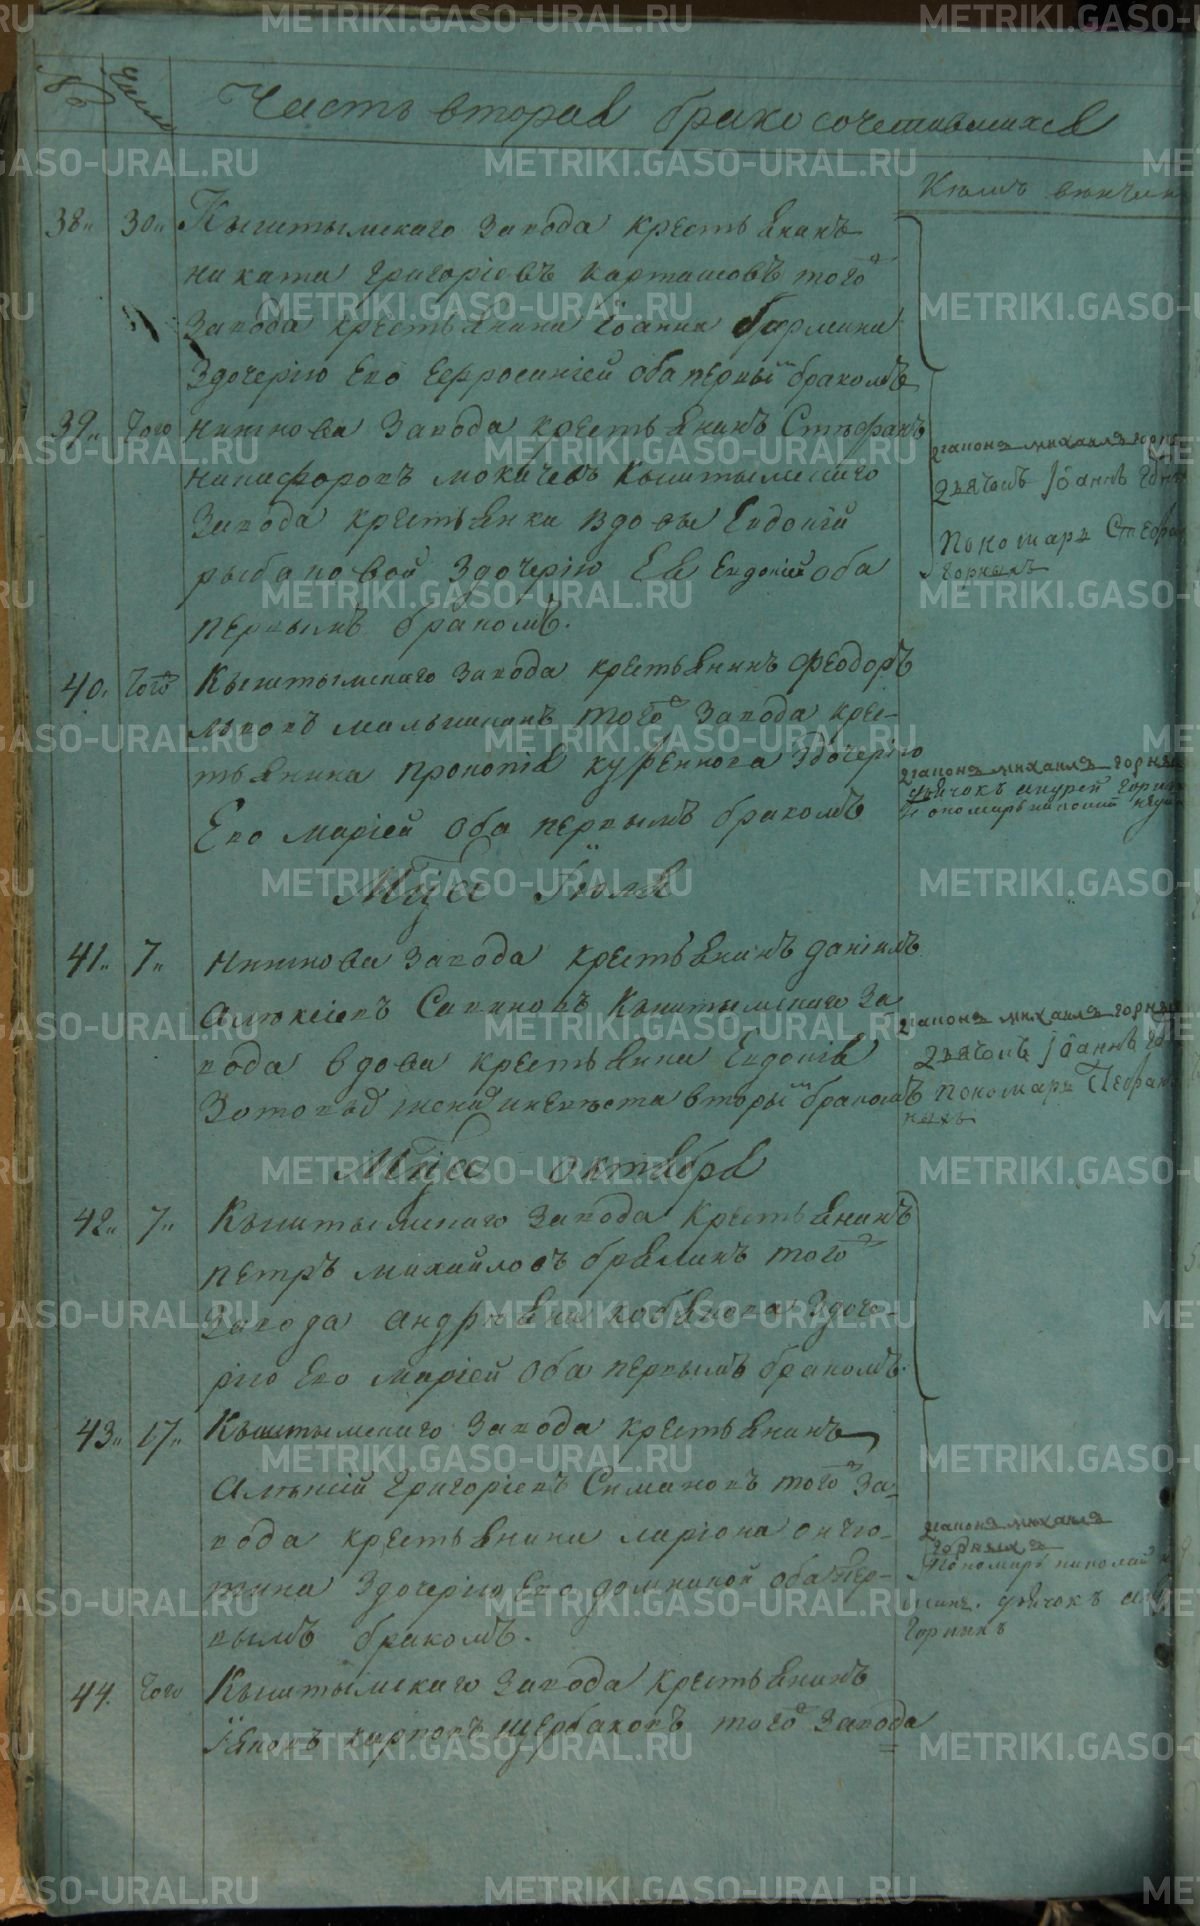 № Число
Часть вторая бракосочетавшихся
Кѣмъ венчан
38. 30. Кыштымскаго завода крестьянинъ
никита григорiевъ карташовъ того
завода крестьянина Iоанна бармина
Здочерiю Его Ефросинiей оба первымъ бракомъ
39. того нижнова завода крестьянинъ Стефанъ
никифоровъ мокичевъ Кыштымскаго
завода крестьянки вдовы Евдокiи
рыбаковой Здочерiю Ея Евдокiей оба
первымъ бракомъ.
дiаконъ михаилъ горн
дьячокъ Iоаннъ
Пономарь Стефан
горныхъ
40. того Кыштымскаго завода крестьянинъ Феодоръ
львовъ малышковъ того завода крес-
тьянина прокопiя куренкова Здочерiю
Его марiей оба первымъ бракомъ
дiаконъ михаилъ горны
дьячокъ андрей горны
пономарь
Мца Iюля
41. 7. нижнова завода крестьянинъ данiилъ
алексiевъ Савиновъ Кыштымскаго за
вода вдова крестьянка Евдокiя
Зотова жениъ и невѣста вторымъ бракомъ
дiаконъ михаилъ горны
дьячокъ Iоаннъ
пономарь Стефан
ныхъ
Мца октября
42. 7. Кыштымскаго завода крестьянинъ
петръ михайловъ брялинъ того
завода андрѣяна кобякова Здоче-
рiю Его марiей оба первымъ бракомъ.
43. 17. Кыштымскаго завода крестьянинъ
алексiй григорiевъ Симановъ того за-
вода крестьянина ларiона
Здочерiю Его домникой оба пер-
вымъ бракомъ.
дiаконъ михаилъ
горныхъ
Пономарь николай
дьячокъ
горныхъ
44. того Кыштымскаго завода крестьянинъ
Iяковъ карповъ щербаковъ того завода
METRIKI.GASO-URAL.RU